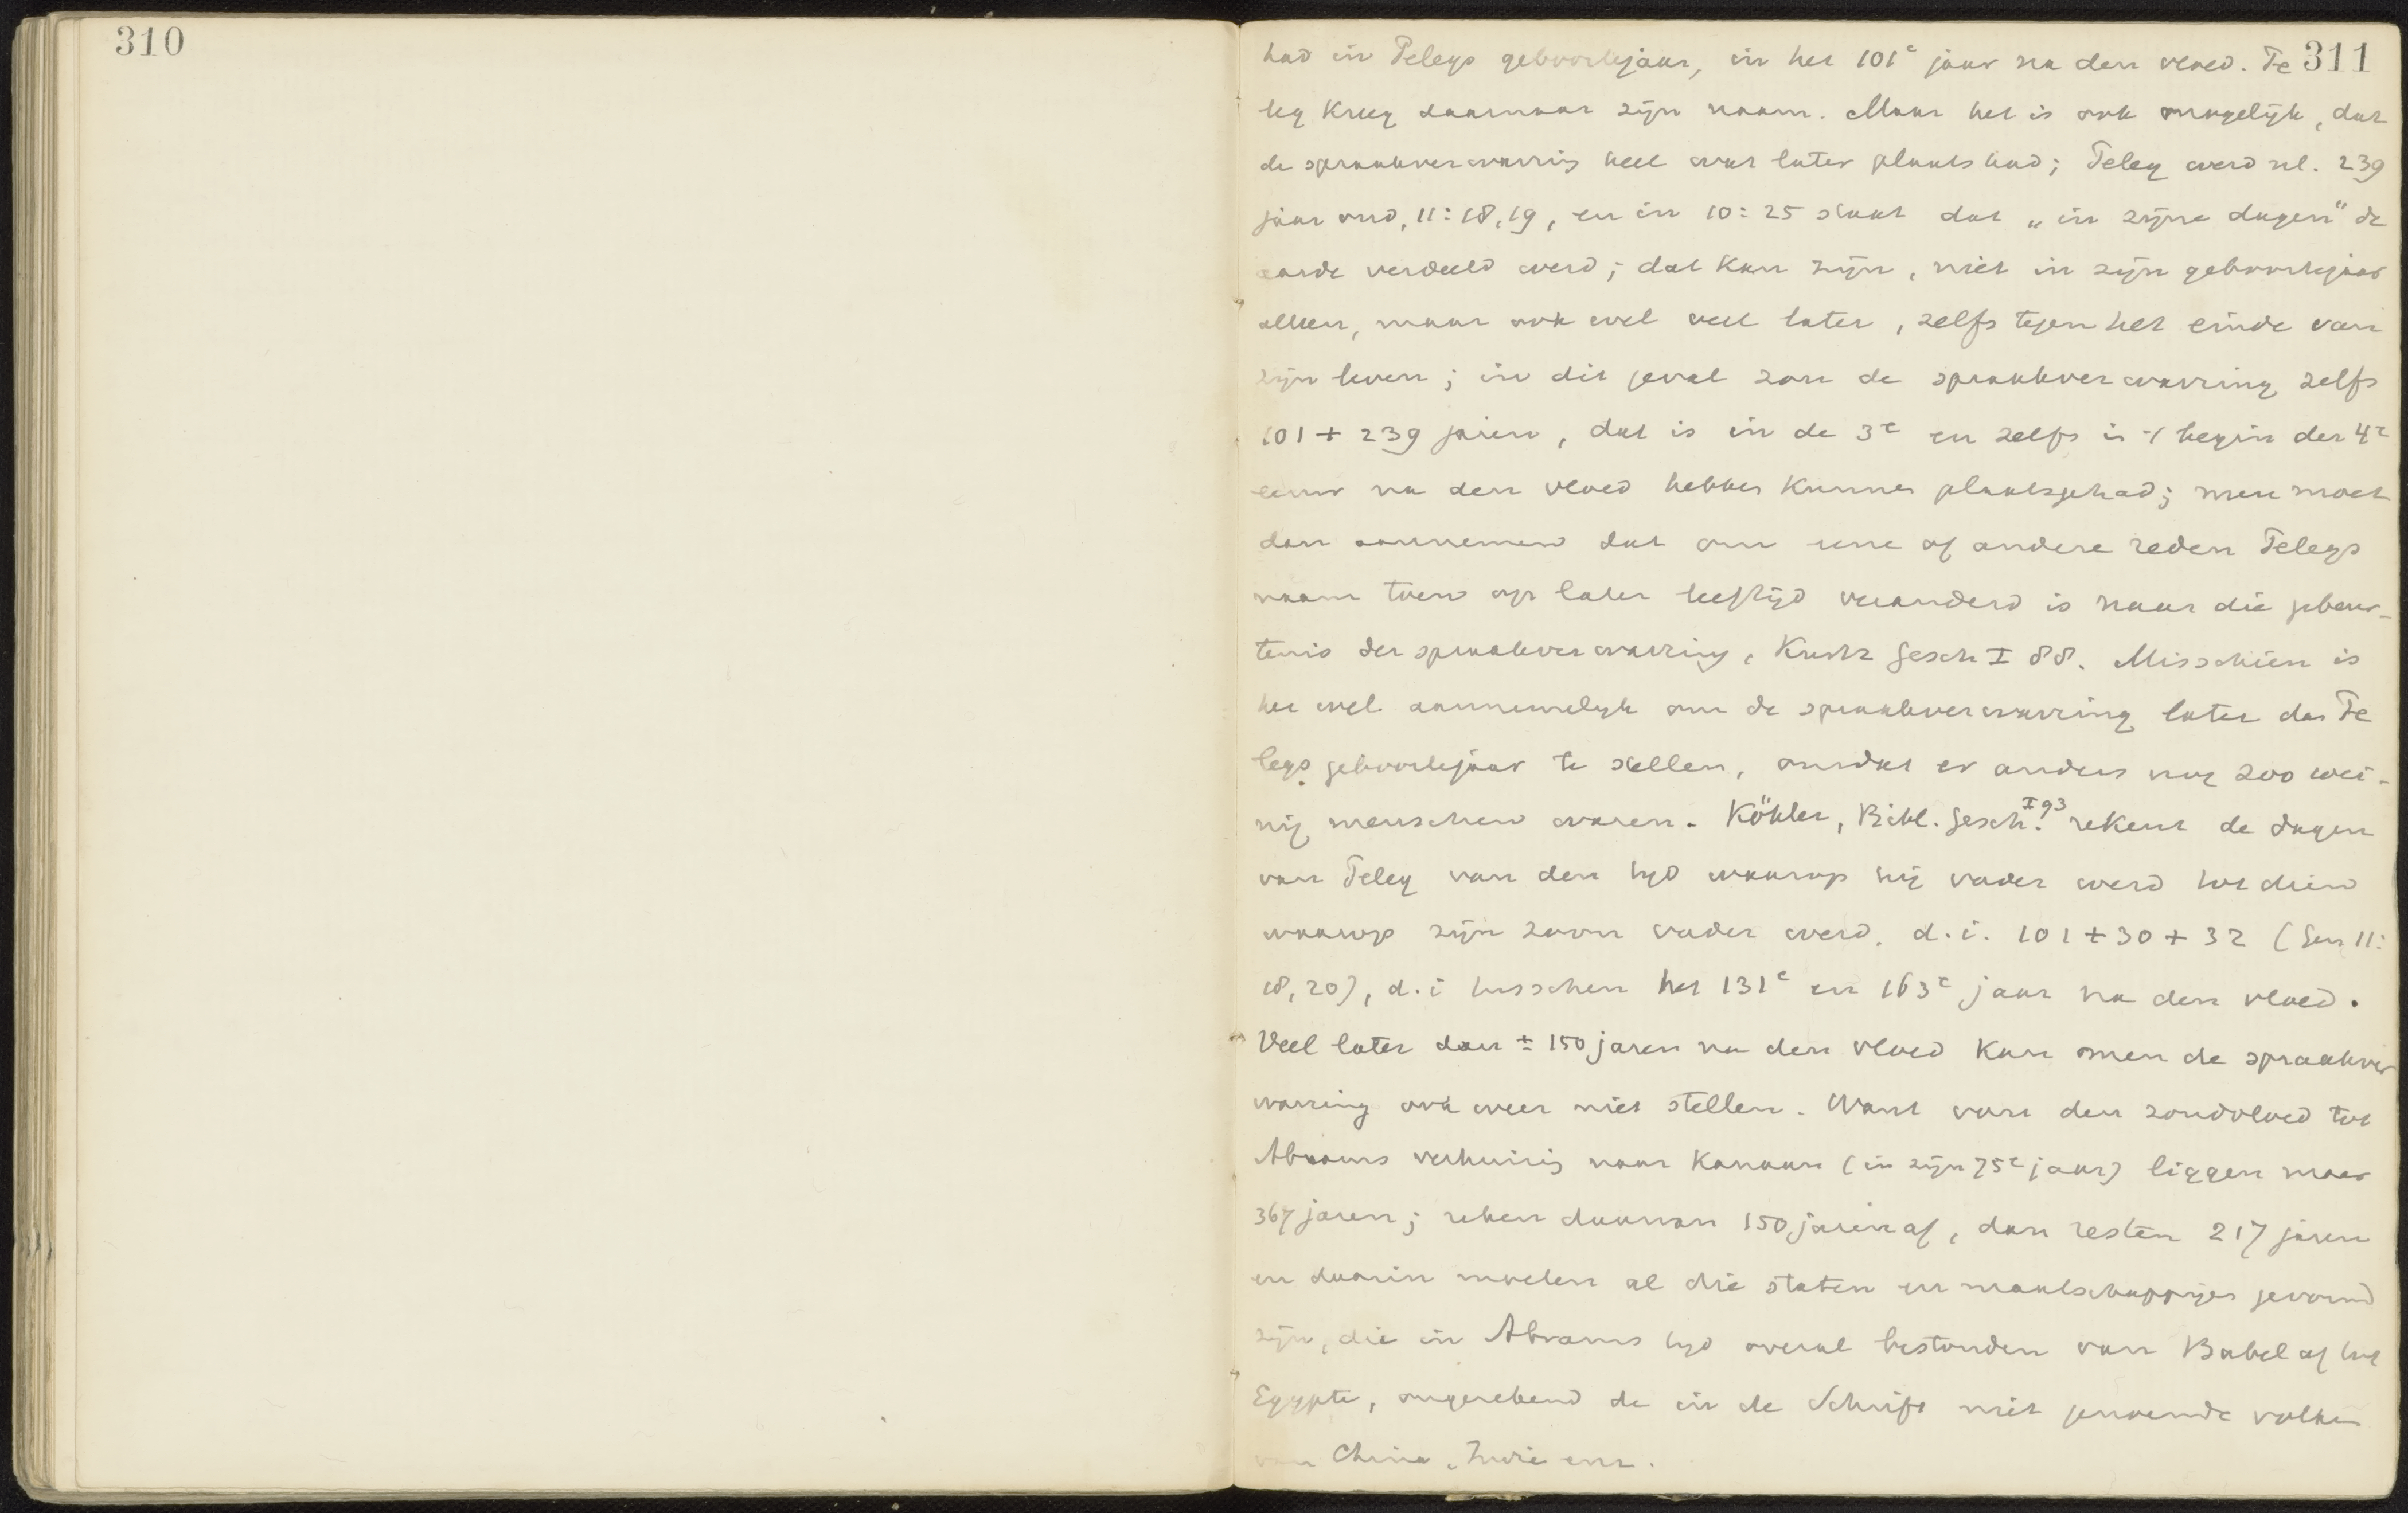 310
311
had in Pelegs geboortejaar, in het 101e jaar na den vloed. Pe
leg kreeg daarnaar zijn naam. Maar het is ook mogelijk, dat
de spraakverwarring heel wat later plaats had; Peleg werd nl. 239
jaar oud, 11:18,19, en in 10:25 staat dat „in zijne dagen" de
aarde verdeeld werd; dat kan zijn, niet in zijn geboortejaar
alleen, maar ook wel veel later, zelfs tegen het einde van
zijn leven; in dit geval zou de spraakverwarring zelfs
101 + 239 jaren, dat is in de 3e en zelfs in 't begin der 4e
eeuw na den vloed hebben kunnen plaatsgehad; men moet
dan aannemen dat om eene of andere reden Pelegs
naam toen op later leeftijd veranderd is naar die gebeur-
tenis der spraakverwarring, Kurtz Gesch I 88. Misschien is
het wel aannemelijk om de spraakverwarring later dan Pe
legs geboortejaar te stellen, omdat er anders nog zoo wei-
nig menschen waren. Köhler, Bibl. Gesch. I 93 rekent de dagen
van Peleg van den tijd waarop hij vader werd tot dien
waarop zijn zoon vader werd, d.i. 101 + 30 + 32 (Gen 11:
18,20), d.i tusschen het 131e en 163e jaar na den vloed.
Veel later dan ± 150 jaren na den vloed kan men de spraakver
warring ook weer niet stellen. Want van den zondvloed tot
Abrams verhuizing naar Kanaan (in zijn 75e jaar) liggen maar
367 jaren; reken daarvan 150 jaren af, dan resten 217 jaren
en daarin moeten al die staten en maatschappijen gevormd
zijn, die in Abrams tijd overal bestonden van Babel af tot
Egypte, ongerekend de in de Schrift niet genoemde volken
van China, Indie enz.